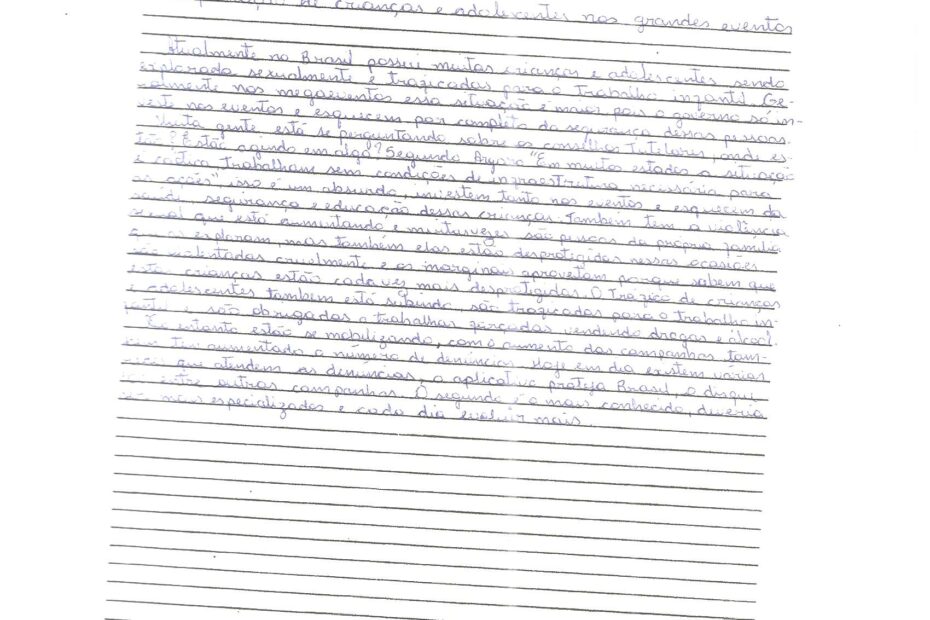 de crianças e adolescentes nos grandes eventos
Atualmente no Brasil possui muitas crianças e adolescentes sendo
explorada sexualmente e traficadas para o trabalho infantil. Ge-
ralmente nos megaeventos essa situação é maior pois o governo só in-
veste nos eventos e esquecem por completo da segurança dessas pessoas.
Muita gente está se perguntando sobre os conselhos tutelares, onde es-
tão? Estão agindo em algo? Segundo "Em muitos estados a situação
é trabalham sem condições de infraestrutura necessária para
as ações", isso é um absurdo, investem tanto nos eventos e esquecem da
saúde, segurança e educação dessas crianças. Também tem a violência
sexual que está aumentando e muitas vezes são pessoas da própria família
que as exploram, mas também elas estão desprotegidas nessas ocasiões
são molestadas cruelmente e os marginais aproveitam porque sabem que
estas crianças estão cada vez mais desprotegidas. O tráfico de crianças
e adolescentes também está subindo, são traficadas para o trabalho in-
fantil e são obrigadas a trabalhar forçadas vendendo drogas e álcool.
No entanto estão se mobilizando, com o aumento das campanhas tam-
bém tem aumentado o número de denúncias. Hoje em dia existem várias
que atendem as denúncias, o aplicativo proteja Brasil, o disque
entre outras campanhas. O segundo é o mais conhecido, deveria
mais especializados e cada dia evoluir mais.